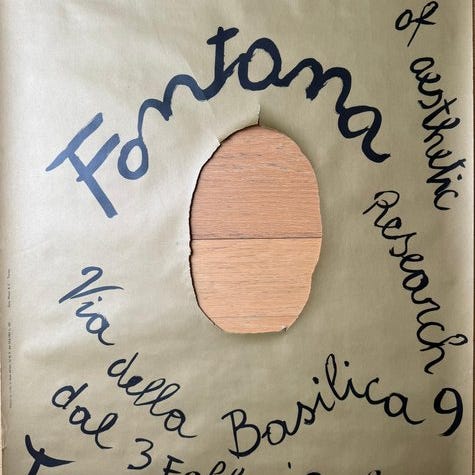 Fontana
of aesthetic
Research
Via della Basilica 9
dal 3